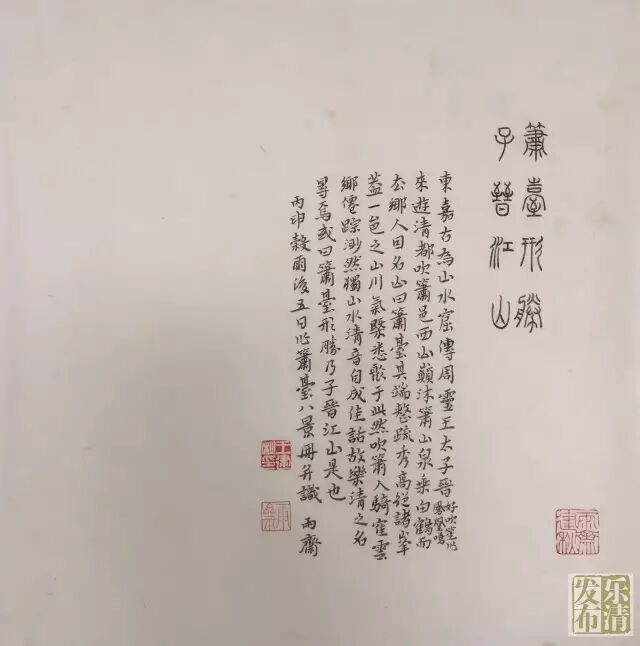 簫臺形勝
子晉江山
東嘉古為山水窟傳周靈王太子晉好吹笙作鳳凰鳴
來遊清都吹簫邑西山巔沐簫山泉乘白鶴而
去鄉人因名山曰簫臺其端整疏秀高從諸峯
蓋一邑之山川氣槩悉聚于此然吹簫人騎寉雲
鄉僊踪渺然獨山水清音自成佳話故樂清之名
昪焉或曰簫臺形勝乃子晉江山是也
丙申穀雨後五日作簫臺八景冊并識 雨齋
乐清
发布